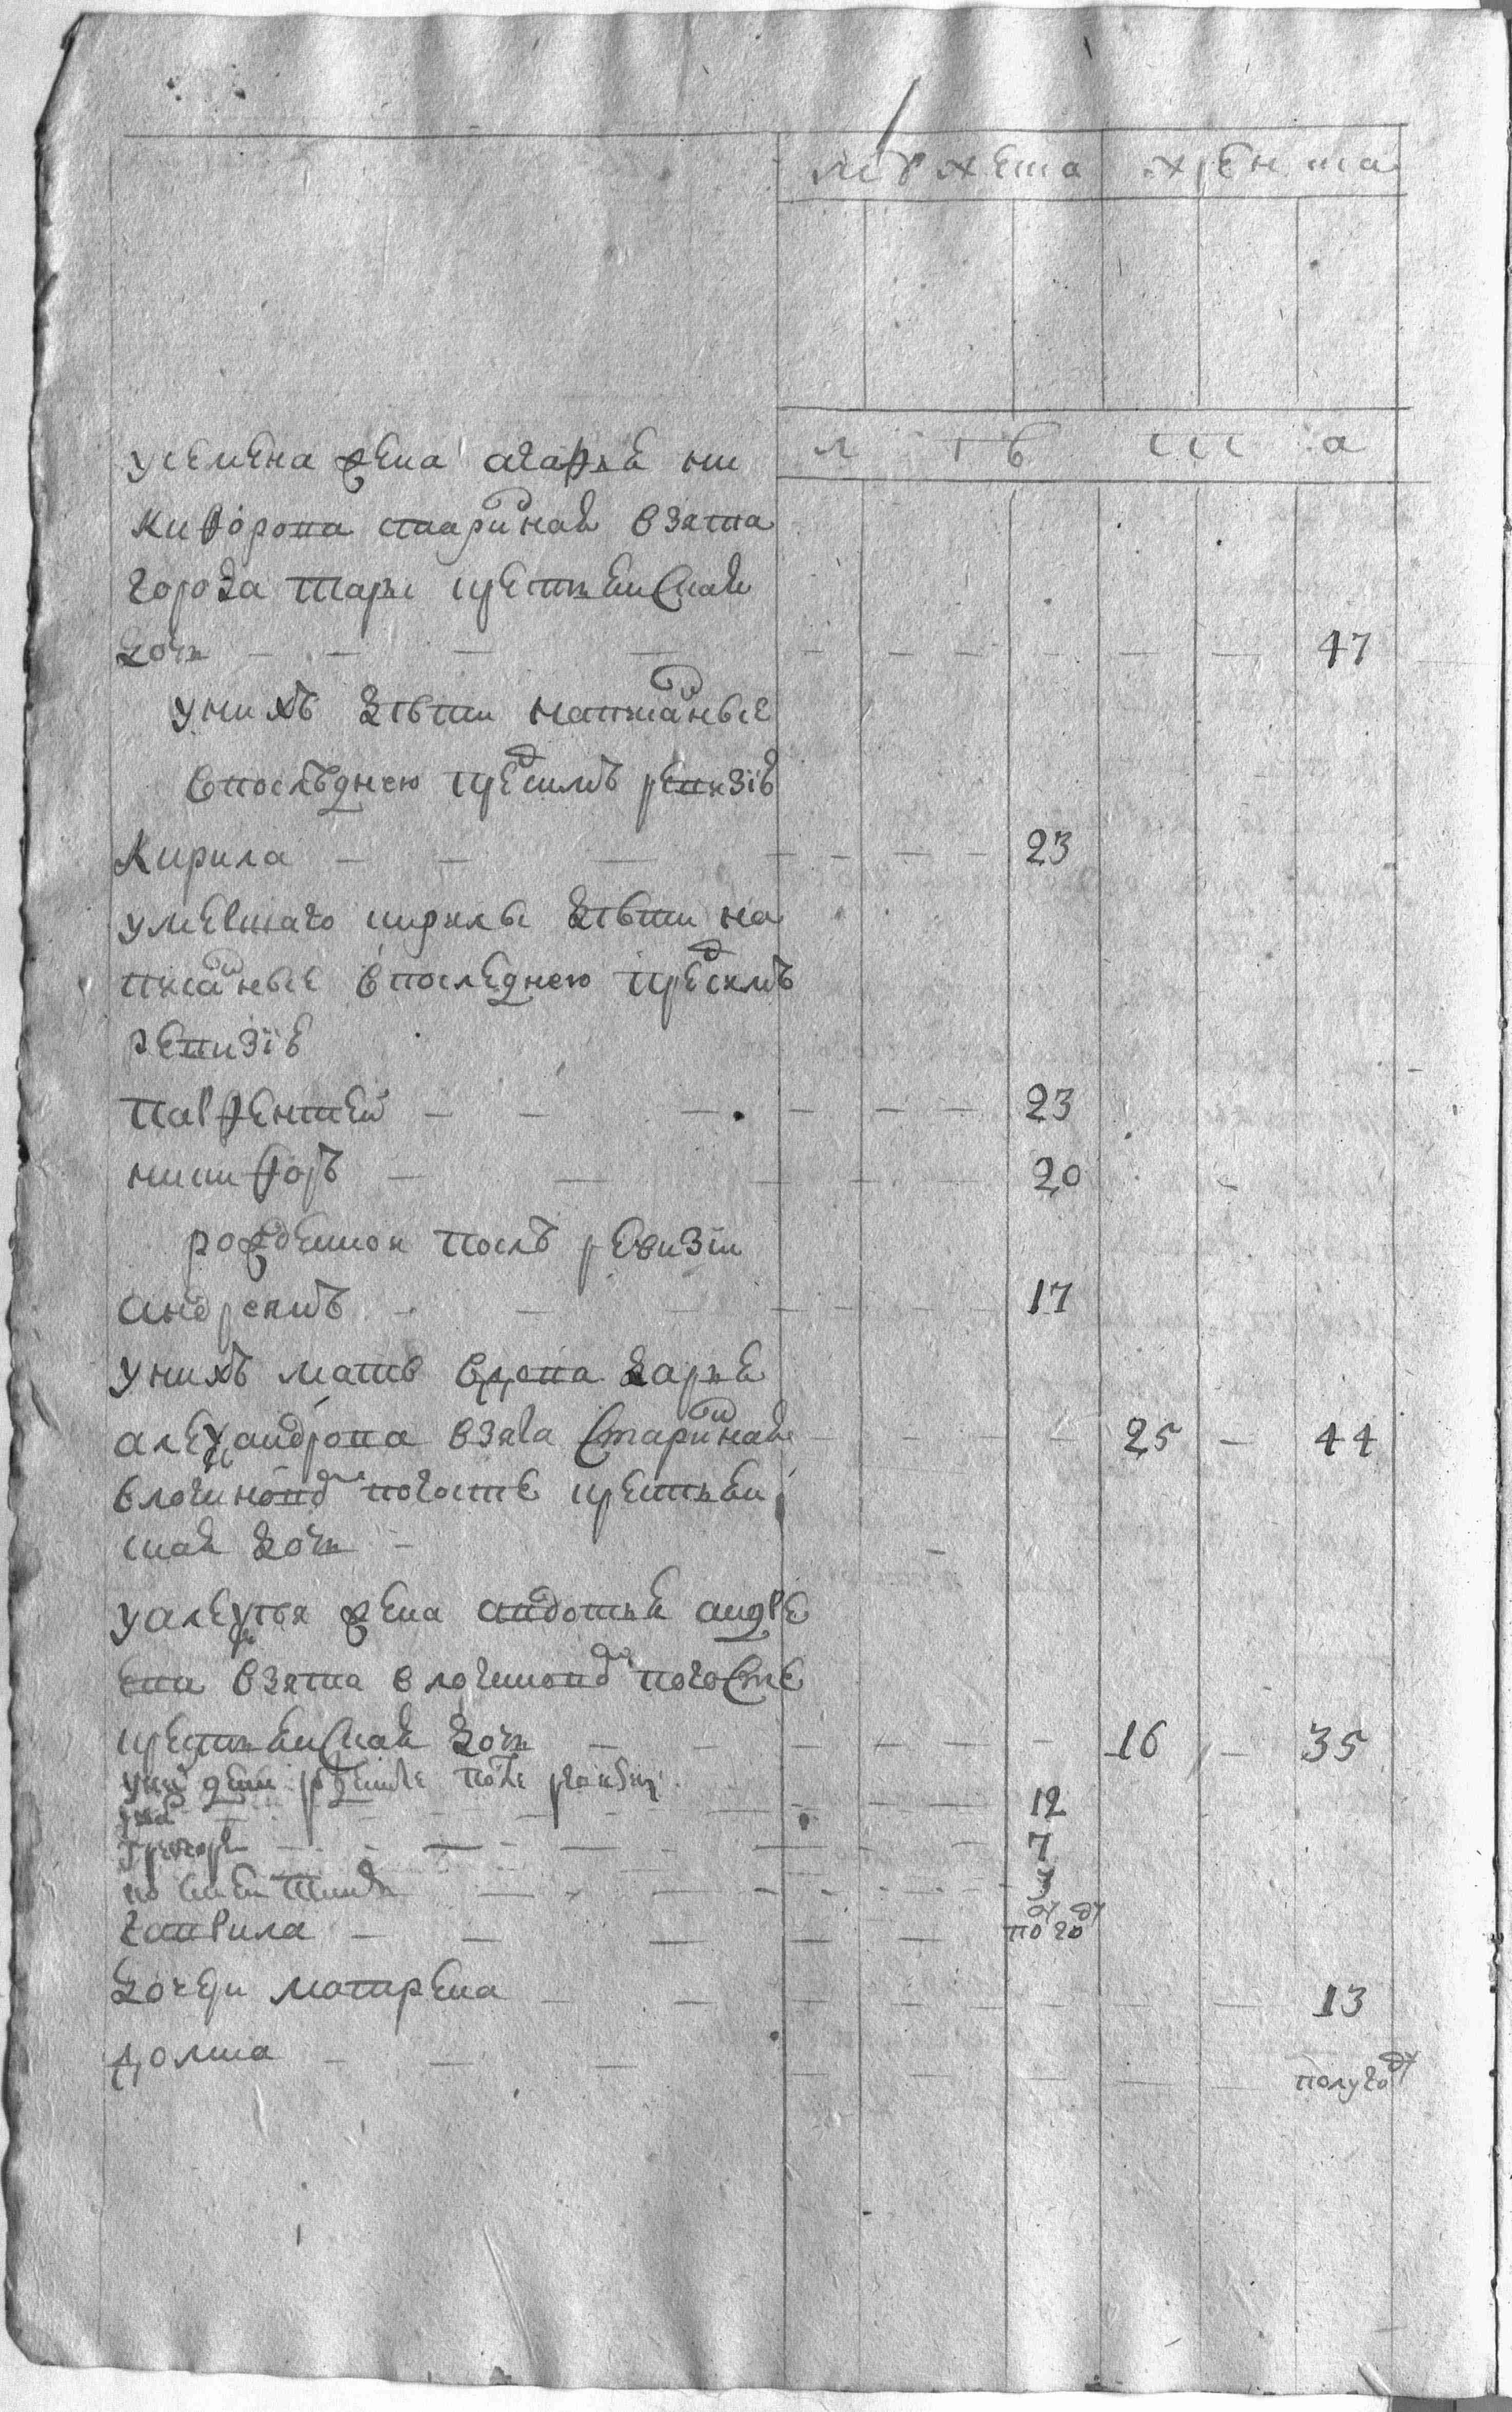 мужеска женска
л ѣ т а
у семена жена агафья ни
кифорова старинная взята
города тары крестьянская
дочь 47
у нихъ дѣти написанные
в последнею пред симъ ревизiю
Кирила 23
умершаго кирилы дѣти на
писанные в последнею пред симъ
ревизiю
парфентей 23
никифоръ 20
рожденои послѣ ревизiи
андреянъ 17
у нихъ мать вдова дарья
александрова взята старинная 25 44
в логинов погосте крестьян
ская дочь
у алексея жена авдотья андре
ева взята в логинов погосте
крестьянская дочь 16 35
у них дети рожденые после ревизи
12
григореи 7
3
гаврила по году
дочери матрена 13
домна полугоду